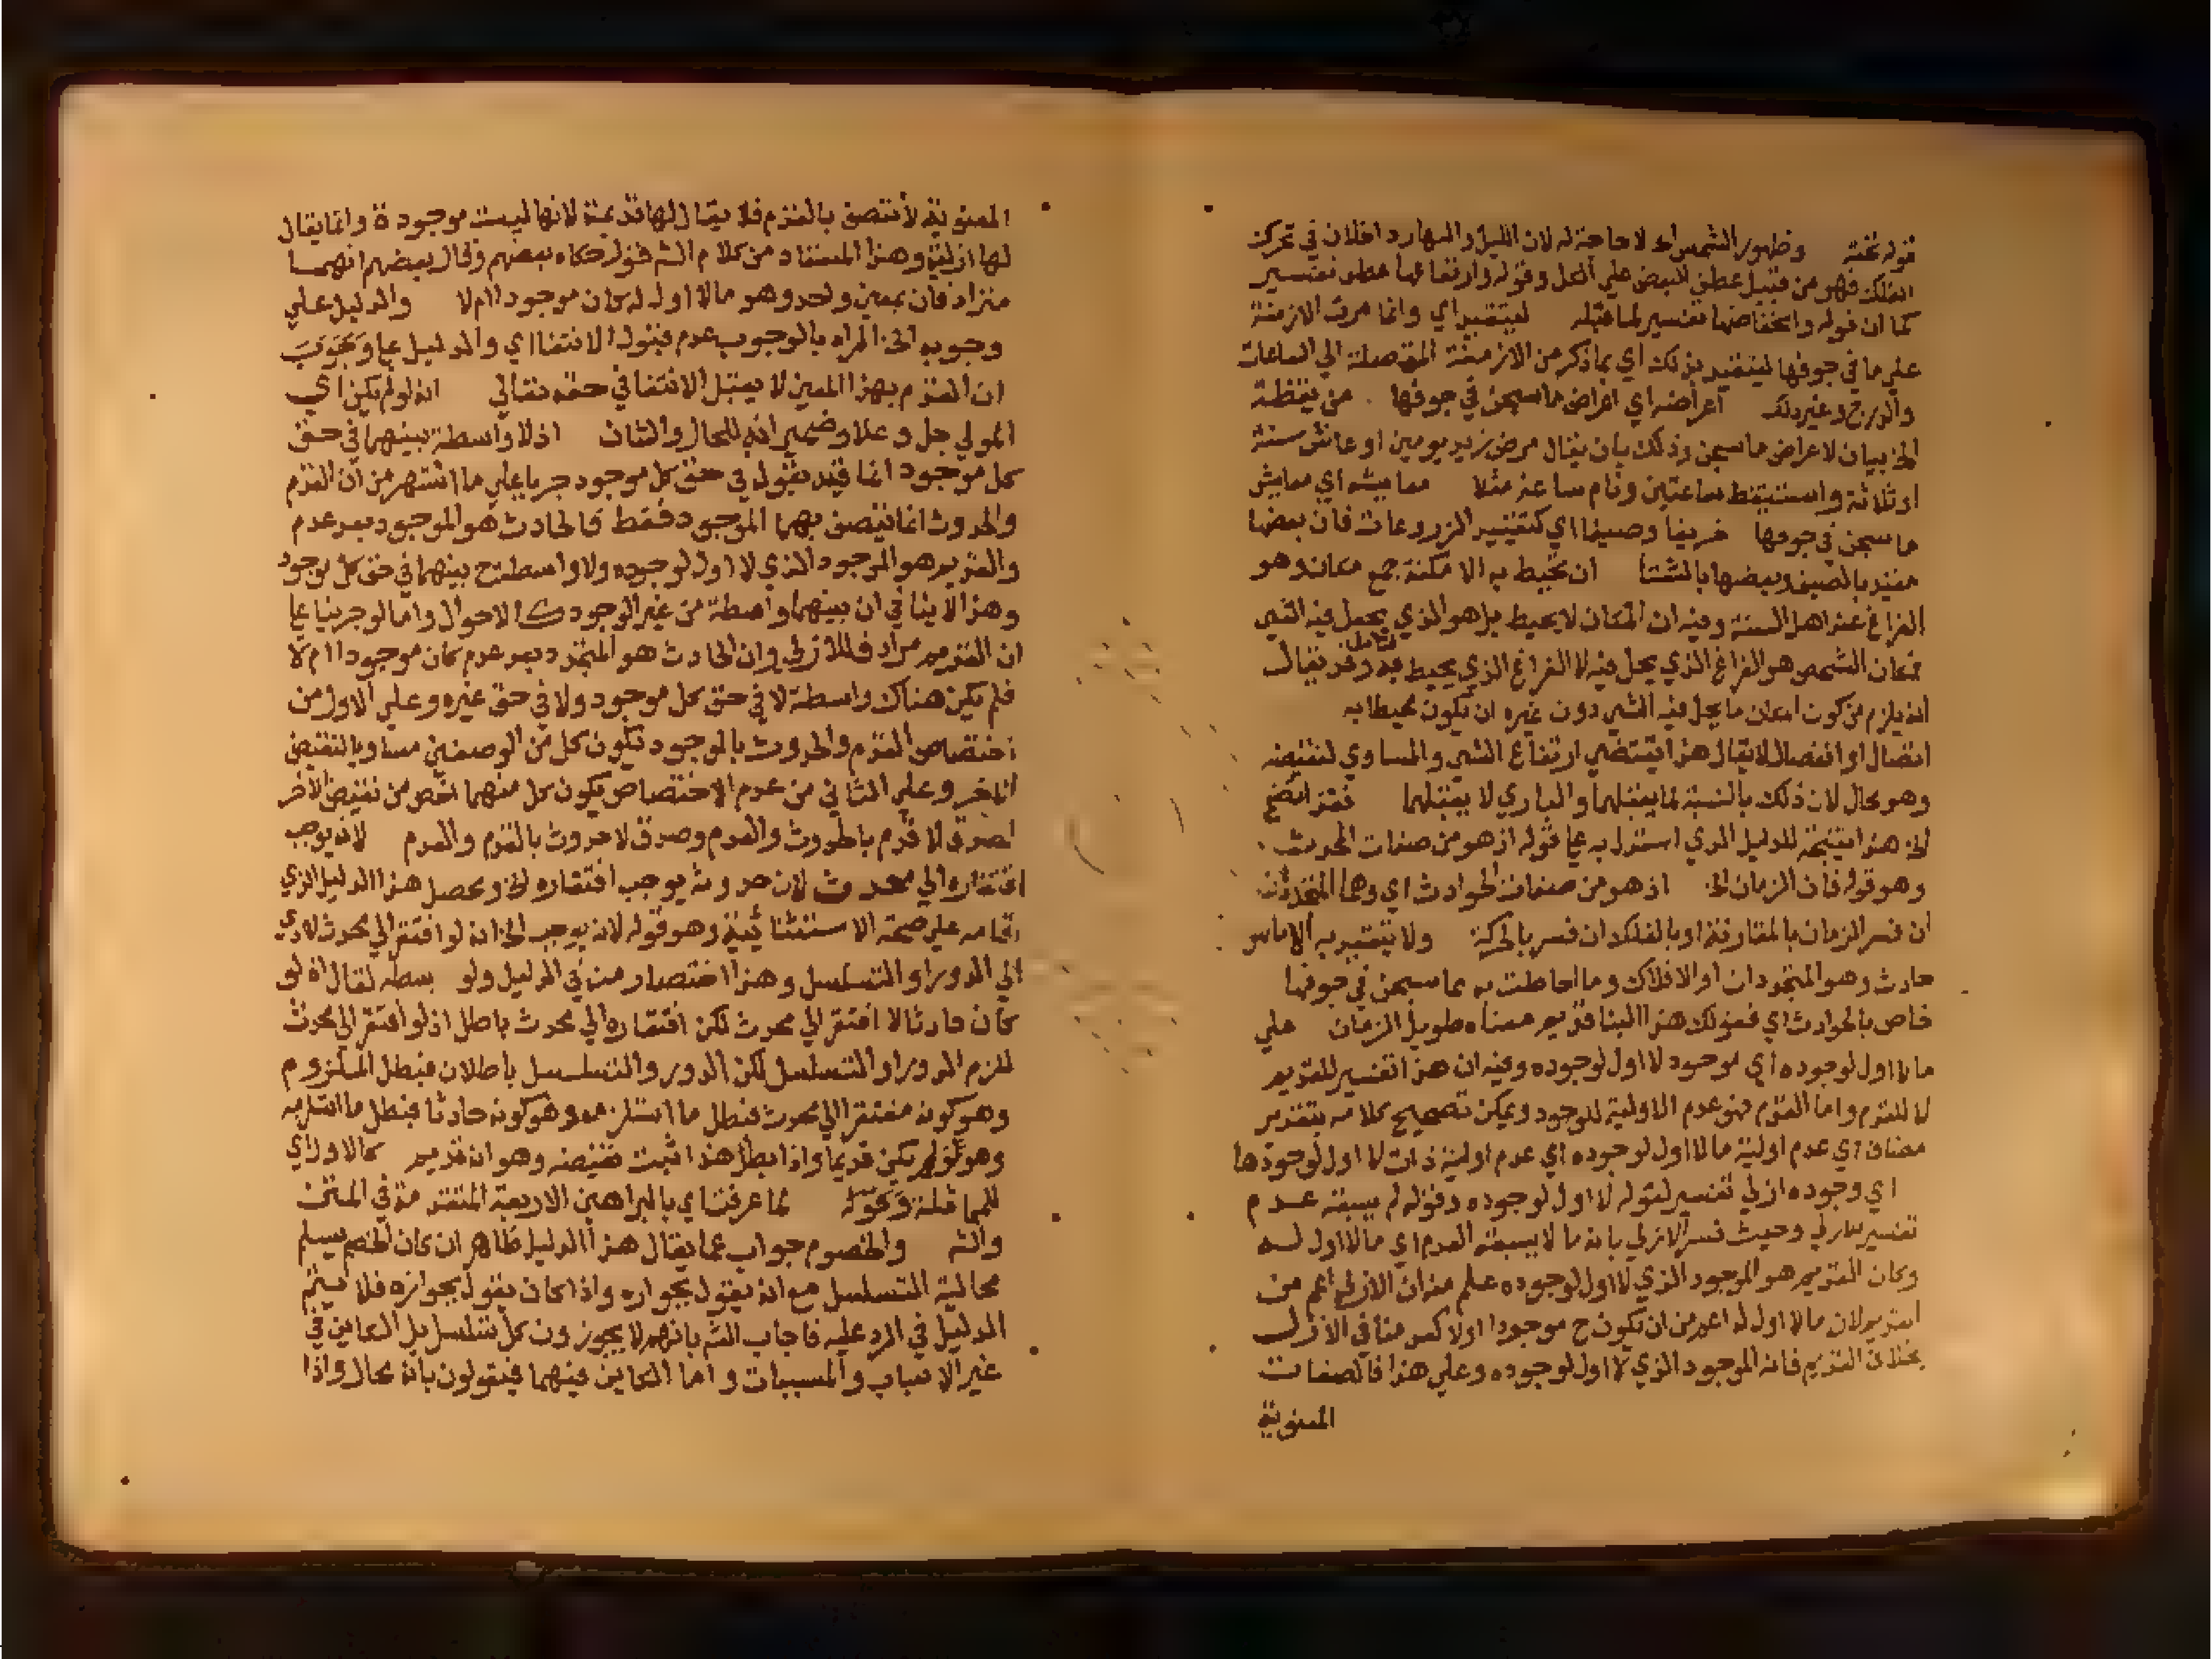 قوله تحته وظهور الشمس الخ لا حاجة له لان الليل والنهار داخلان في تحرك
الفلك فهو من قبيل عطف البعض علي الكل وقوله وارتفاعها عطف تفسير
كما ان قوله وانخفاضها تفسير لما قبله ليتقيد اي وانما مرت الازمنة
علي ما في جوفها ليتقيد بذلك اي بما ذكر من الازمنة المفصلة الي الساعات
والدرج وغير ذلك اعراضه اي اعراض ما سجن في جوفها من يقظة
الخ بيان لاعراض ما سجن وذلك بان يقال مرض زيد يومين او عاش سنة
او ثلاثة واستيقظ ساعتين ونام ساعة مثلا معايشه اي معايش
ما سجن في جوفها خريفا وصيفا اي كتقييد المزروعات فان بعضها
مقيد بالصيف وبعضها بالشتا ان تحيط به الامكنة جمع مكان وهو
الفراغ عند اهل السنة وفيه ان المكان لا يحيط بل هو الذي يحل فيه الشي
فمكان الشمس هو الفراغ الذي يحل فيه لا الفراغ الذي يحيط به وقد يقال
انه يلزم من كون المكان ما يحل فيه الشي دون غيره ان يكون محيطا به
اتصال او انفصال لا يقال هذا يقتضي ارتفاع الشي والمساوي لنقيضه
وهو محال لان ذلك بالنسبة لما يقبلهما والباري لا يقبلهما فقد اتضح
الخ هذا نتيجة للدليل الذي استدل به علي قوله اذ هو من صفات المحدث
وهو قوله فان الزمان الخ اذ هو من صفات الحوادث اي وهما المتجددان
ان فسر الزمان بالمقارنة او بالفلك ان فسر بالحركة ولا يتقيد به الا ما
حادث وهو المتجددان او الافلاك وما احاطت به مما سجن في جوفها
خاص بالحوادث اي فقولك هذا البنا قديم معناه طويل الزمان علي
ما لا اول لوجوده اي موجود لا اول لوجوده وفيه ان هذا تفسير للقديم
لا للقدم واما القدم فهو عدم الاولية للوجود ويمكن تصحيح كلامه بتقدير
مضاف اي عدم اولية ما لا اول لوجوده اي عدم اولية ذات لا اول لوجودها
اي وجوده ازلي تفسير لقوله لا اول لوجوده وقوله لم يسبقه عدم
تفسير للازلي وحيث فسر الازلي بانه ما لا يسبقه العدم اي ما لا اول له
وكان القديم هو الموجود الذي لا اول لوجوده علم منه ان الازلي اعم من
القديم لان ما لا اول له اعم من ان يكون ح موجودا اولا في الازل
بخلاف القديم فانه الموجود الذي لا اول لوجوده وعلي هذا فالصفات
المعنوية
المعنوية لا تتصف بالقدم فلا يقال لها قديمة لانها ليست موجودة وانما يقال
لها ازلية وهذا المستفاد من كلام الشه قول حكاه بعضهم وقال بعضهم انهما
مترادفان بمعني واحد وهو ما لا اول له كان موجودا ام لا والدليل علي
وجوبه الخ المراد بالوجوب عدم قبول الانتفا اي والدليل علي وجوب
ان القدم بهذا المعني لا يقبل الانتفا في حقه تعالي انه لو لم يكن اي
المولي جل وعلا وضمير انه للحال والشان اذ لا واسطة بينهما في حق
كل موجود انما قيد بقوله في حق كل موجود جريا علي ما اشتهر من ان القدم
والحدوث انما يتصف بهما الموجود فقط فالحادث هو الموجود بعد عدم
والقديم هو الموجود الذي لا اول لوجوده ولا واسطة ح بينهما في حق كل موجود
وهذا لا ينافي ان بينهما واسطة من غير الموجود كالاحوال واما لو جرينا علي
ان القديم مرادف للازلي وان الحادث هو المتجدد بعد عدم كان موجودا ام لا
فلم يكن هناك واسطة لا في حق كل موجود ولا في حق غيره وعلي الاول من
اختصاص القدم والحدوث بالموجود يكون كل من الوصفين مساويا لنقيض
الاخر وعلي الثاني من عدم الاختصاص يكون كل منهما اخص من نقيض الاخر
لصدق لا قدم بالحدوث والعدم وصدق لا حدوث بالقدم والعدم لانه يوجب
افتقاره الي محدث لان حدوثه يوجب افتقاره الخ ومحصل هذا الدليل الذي
اقامه علي صحة الاستثنائية وهو قوله لانه يوجب الخ انه لو افتقر الي محدث لادي
الي الدور او التسلسل وهذا اختصار منه في الدليل ولو بسطه لقال انه لو
كان حادثا لافتقر الي محدث لكن افتقاره الي محدث باطل اذ لو افتقر الي محدث
للزم الدور او التسلسل لكن الدور والتسلسل باطلان فبطل الملزوم
وهو كونه مفتقرا الي محدث فبطل ما استلزمه وهو كونه حادثا فبطل ما استلزمه
وهو لو لم يكن قديما واذا بطل هذا ثبت نقيضه وهو انه قديم كالاول اي
للمماثلة لما عرفت اي بالبراهين الاربعة المتقدمة في المتن
والشه وللخصوم جواب عما يقال هذا الدليل ظاهر ان كان الخصم يسلم
محالية التسلسل مع انه يقول بجوازه واذا كان يقول بجوازه فلا يتم
الدليل في الرد عليه فاجاب الشه بانهم لا يجوزون كل تسلسل بل الكاين في
غير الاسباب والمسببات واما الكاين فيهما فيقولون بانه محال واذا